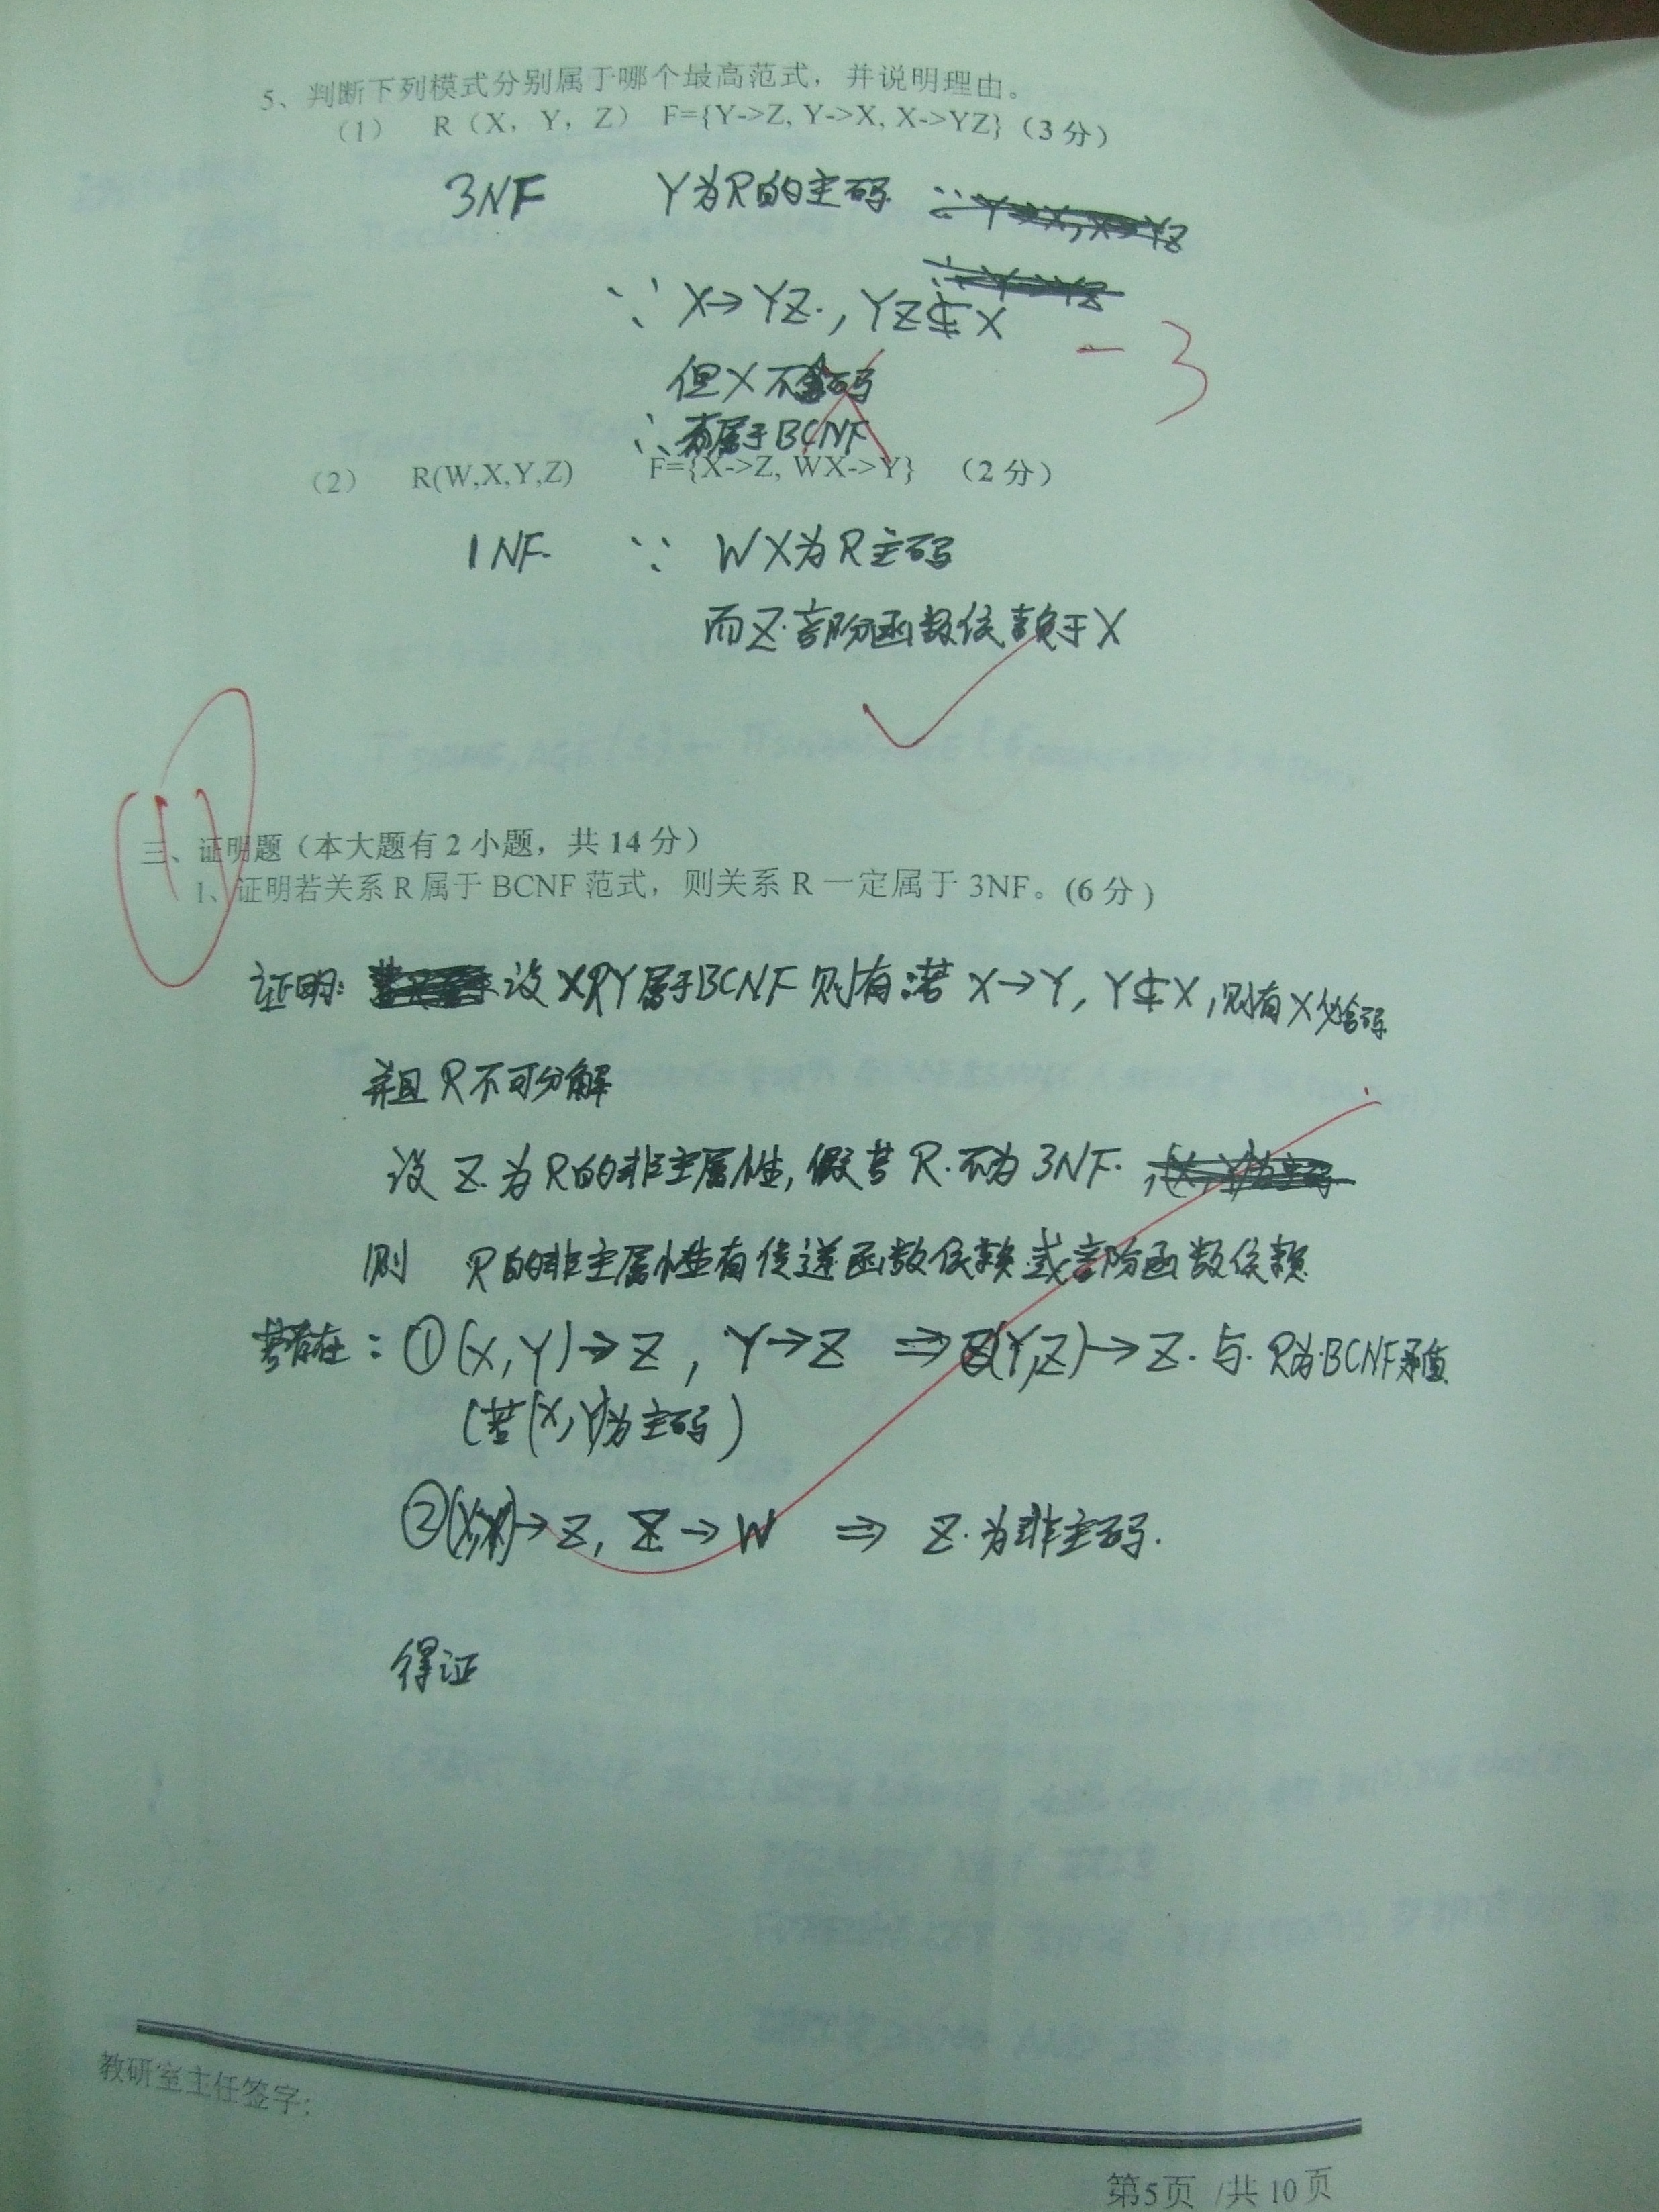 5、判断下列模式分别属于哪个最高范式，并说明理由。
（1） R（X，Y，Z） F={Y->Z, Y->X, X->YZ}（3分）
3NF Y为R的主码
∵ X→YZ. , YZ⊄X
-3
但X不含码
属于BCNF
（2） R(W,X,Y,Z) F={X->Z, WX->Y} （2分）
1NF. ∵ WX为R主码
而Z部份函数依赖于X
11
三、证明题（本大题有2小题，共14分）
1、证明若关系R属于BCNF范式，则关系R一定属于3NF。(6分)
证明: 设 属于BCNF 则有:若 X→Y, Y⊄X, 则有X必含码
并且R不可分解
设Z为R的非主属性, 假若R.不为3NF.
则 R的非主属性有传递函数依赖或部份函数依赖
若存在: ①(X,Y)→Z , Y→Z ⇒ (Y,Z)→Z. 与. R为.BCNF矛盾
(若(X,Y)为主码)
② →Z, Z→W ⇒ Z.为非主码.
得证
教研室主任签字:
第5页 /共10页